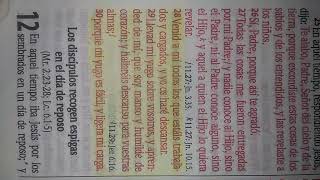 25 En aquel tiempo, respondiendo Jesús,
dijo: Te alabo, Padre, Señor del cielo y de la
tierra, porque escondiste estas cosas de los
sabios y de los entendidos, y las revelaste a
26 Sí, Padre, porque así te agradó.
27 Todas las cosas me fueron entregadas
por mi Padre; y nadie conoce al Hijo, sino
el Padre, ni al Padre conoce alguno, sino
el Hijo, y aquel a quien el Hijo lo quiera
revelar.
11.27: Jn. 3.35. 11.27: Jn. 10.15.
28 Venid a mí todos los que estáis trabaja-
dos y cargados, y yo os haré descansar.
29 Llevad mi yugo sobre vosotros, y apren-
ded de mí, que soy manso y humilde de
corazón; y hallaréis descanso para vuestras
almas;
11.29: Jer. 6.16.
30 porque mi yugo es fácil, y ligera mi carga.
Los discípulos recogen espigas
en el día de reposo
(Mr. 2.23-28; Lc. 6.1-5)
12 En aquel tiempo iba Jesús por los
sembrados en un día de reposo; y